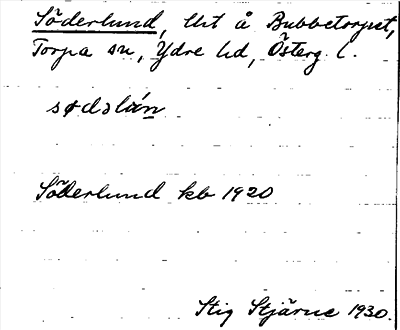 Söderlund, lht å Bubbetorpet,
Torpa sn, Ydre hd, Österg. l.
sødəlán
Söderlund kb 1920
Stig Stjärne 1930.